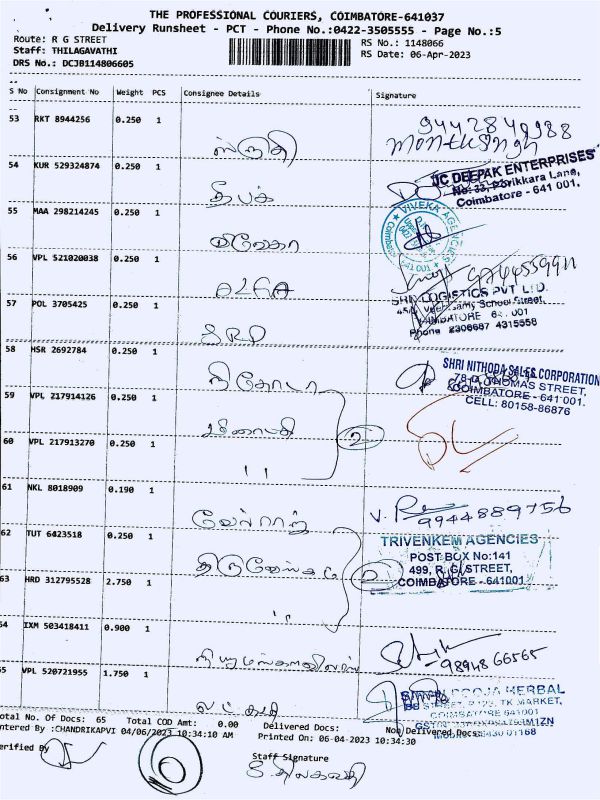 THE PROFESSIONAL COURIERS, COIMBATORE-641037
Delivery Runsheet - PCT - Phone No.:0422-3505555 - Page No.:5
Route: R G STREET
Staff: THILAGAVATHI
DRS No.: DCJB114806605
RS No.: 1148066
RS Date: 06-Apr-2023
S No Consignment No Weight PCS Consignee Details Signature
53 RKT 8944256 0.250 1 ஸ்ருதி 9442849988
54 KUR 529324874 0.250 1 தீபக் JC DEEPAK ENTERPRISES
Coimbatore - 641 001.
55 MAA 298214245 0.250 1 விவேகா VIVEKA AGENCIES
56 VPL 521020038 0.250 1
57 POL 3705425 0.250 1 SRD SHRI LOGISTICS PVT LTD.
Phone 2306687 4315558
58 HSR 2692784 0.250 1 நிதோடா SHRI NITHODA SALES CORPORATION
THOMAS STREET,
COIMBATORE - 641 001.
CELL: 80158-86876
59 VPL 217914126 0.250 1
60 VPL 217913270 0.250 1 " 2
61 NKL 8018909 0.190 1 வேல்ராஜ் 9944889756
62 TUT 6423518 0.250 1 TRIVENKEM AGENCIES
POST BOX No:141
499, R. G. STREET,
COIMBATORE - 641001
63 HRD 312795528 2.750 1 " 2
64 IXM 503418411 0.900 1 98948 66565
65 VPL 520721955 1.750 1 POOJA HERBAL
TK MARKET,
COIMBATORE 641001
Total No. Of Docs: 65 Total COD Amt: 0.00 Delivered Docs: Non Delivered Docs:
Entered By :CHANDRIKAPVI 04/06/2023 10:34:10 AM Printed On: 06-04-2023 10:34:30
Verified By Staff Signature
S திலகவதி